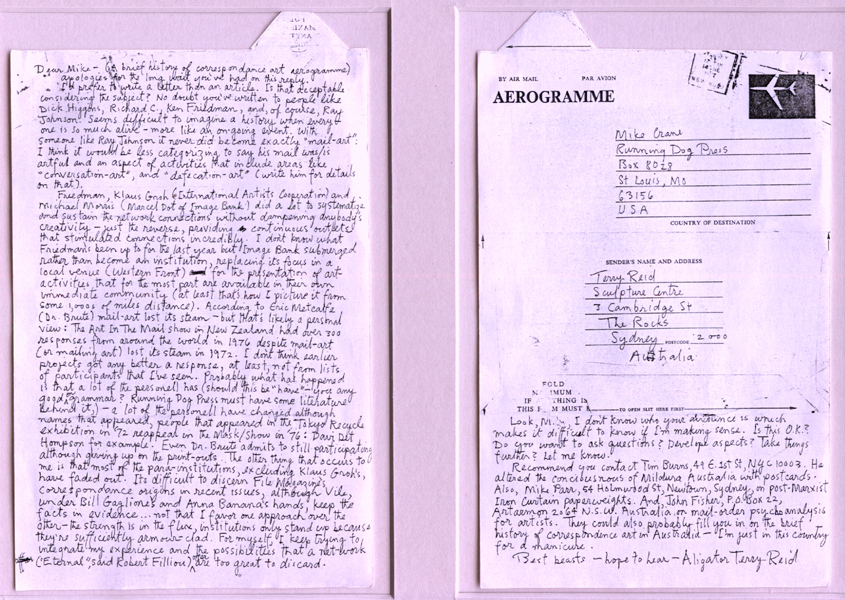 Dear Mike - (A brief history of correspondance art aerogramme)
apologies for the long wait you've had on this reply.
I'd prefer to write a letter than an article. Is that acceptable
considering the subject? No doubt you've written to people like
Dick Higgins, Richard C., Ken Friedman, and, of course, Ray
Johnson. Seems difficult to imagine a history when every
one is so much alive - more like an ongoing event. With
someone like Ray Johnson it never did become exactly "mail-art":
I think it would be less categorizing to say his mail was/is
artful and an aspect of activities that include areas like
"conversation-art", and "defecation-art" (write him for details
on that).
Friedman, Klaus Groh (International Artists Cooperation) and
Michael Morris (Marcel Dot of Image Bank) did a lot to systematize
and sustain the network connections without dampening anybody's
creativity - just the reverse, providing continuous outlets
that stimulated connections incredibly. I don't know what
Friedman's been up to for the last year but Image Bank submerged
rather than become an institution, replacing its focus in a
local venue (Western Front) for the presentation of art
activities, that for the most part are available in their own
immediate community (at least that's how I picture it from
some 1,000s of miles distance). According to Eric Metcalfe
(Dr. Brute) mail-art lost its steam - but that's likely a personal
view: The Art In The Mail show in New Zealand had over 300
responses from around the world in 1976 despite mail-art
(or mailing art) lost its steam in 1972. I don't think earlier
projects got any better a response, at least, not from lists
of participants that I've seen. Probably what has happened
is that a lot of the personell has (should this be "have" - you any
good grammar? Running Dog Press must have some literature
behind it,) - a lot of the personell have changed although
names that appeared, people that appeared in the Tokyo Recycle
exhibition in '72 reappear in the Mask/Show in '76: Davi Det
Hompson for example. Even Dr. Brute admits to still participating
although giving up on the print-outs. The other thing that occurs to
me is that most of the para-institutions, excluding Klaus Groh's,
have faded out. Its difficult to discern File Megazine's
correspondance origins in recent issues, although Vile,
under Bill Gaglione's and Anna Banana's hands, keep the
facts in evidence... not that I favor one approach over the
other - the strength is in the flux, institutions only stand up because
they're sufficiently armour-clad. For myself, I keep trying to
integrate my experience and the possibilities that a net-work
("Eternal" said Robert Filliou) are too great to discard.
BY AIR MAIL PAR AVION
AEROGRAMME
Mike Crane
Running Dog Press
Box 8028
St Louis, Mo
63156
U S A
COUNTRY OF DESTINATION
SENDER'S NAME AND ADDRESS
Terry Reid
Sculpture Centre
3 Cambridge St
The Rocks
Sydney POSTCODE 2000
Australia
FOLD
IF THING IS
THIS MUST TO OPEN SLIT HERE FIRST
Look, I don't know who your audience is which
makes it difficult to know if I'm making sense. Is this O.K.?
Do you want to ask questions? Develope aspects? Take things
further? Let me know.
Recommend you contact Tim Burns, 49 E. 1st St, NYC 10003. He
altered the conciousness of Mildura Australia with postcards.
Also, Mike Parr, 54 Holmwood St, Newtown, Sydney, on post-Marxist
Iron Curtain paperweights. And John Fisher, P.O. Box 22,
Artarmon 2064 N.S.W. Australia, on mail-order psychoanalysis
for artists. They could also probably fill you in on the brief
history of correspondence art in Australia - I'm just in this country
for a manicure.
Best beasts - hope to hear - Aligator Terry Reid